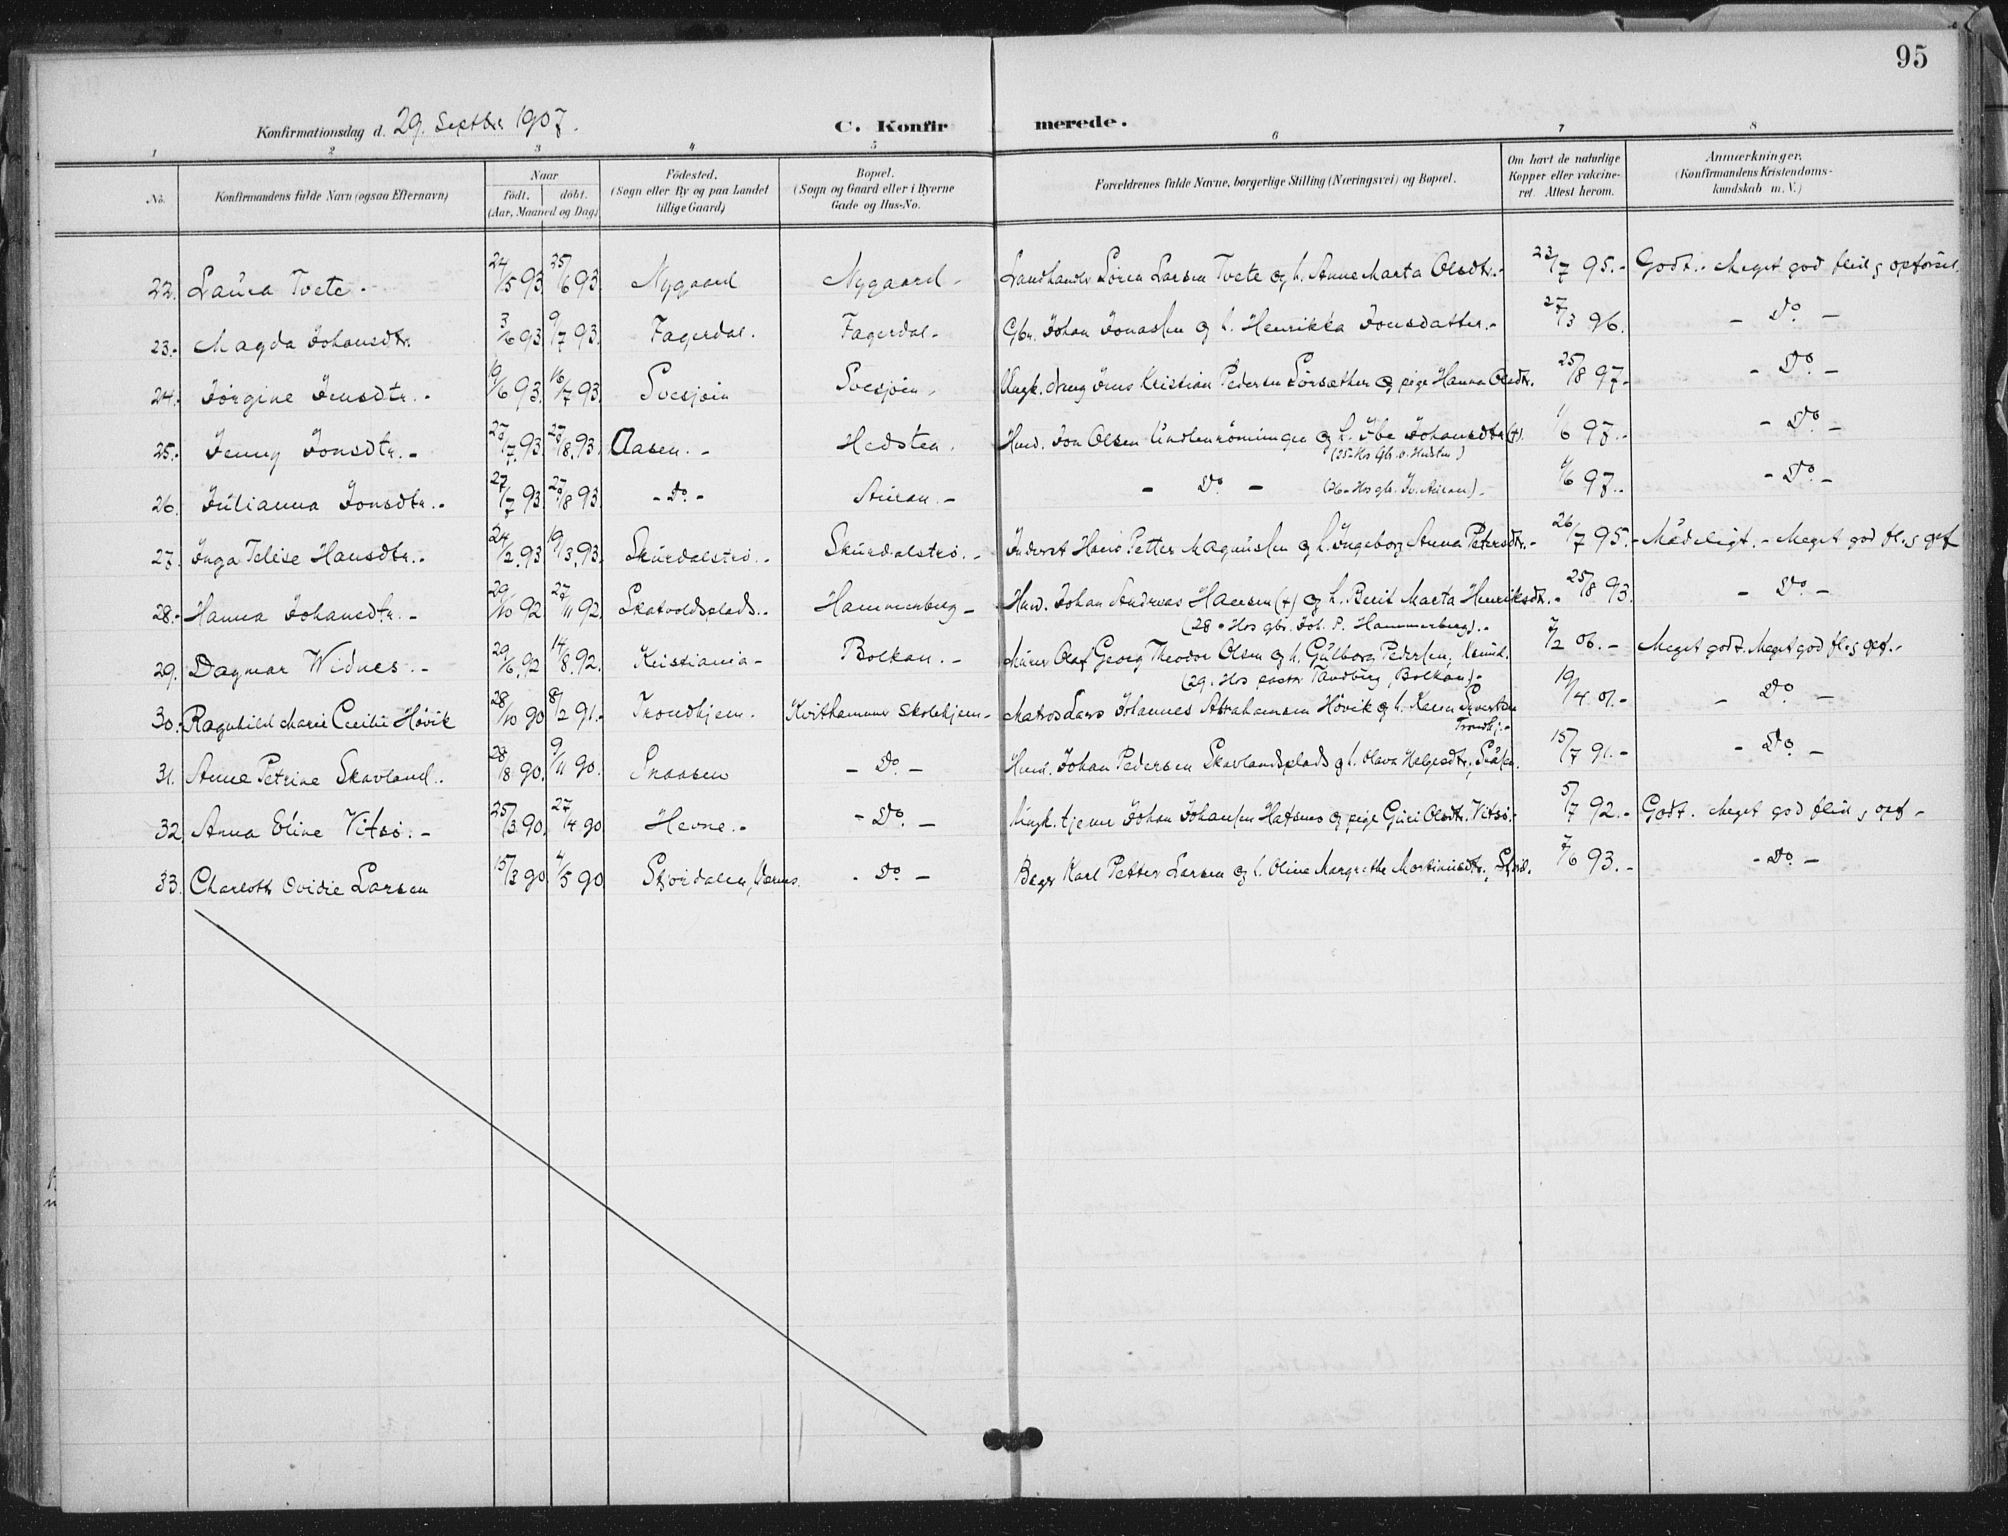 95
Konfirmationsdag d. 29. Septbr 1907.
C. Konfirmerede.
1 2 3 4 5 6 7 8
No. Konfirmandens fulde Navn (ogsaa Efternavn) Naar födt. döbt. (Aar, Maaned og Dag.) Födested. (Sogn eller By og paa Landet tillige Gaard) Bopæl. (Sogn og Gaard eller i Byerne Gade og Hus-No. Forældrenes fulde Navne, borgerlige Stilling (Næringsvei) og Bopæl. Om havt de naturlige Kopper eller vaccineret. Attest herom. Anmærkninger. (Konfirmandens Kristendomskundskab m. V.)
22. Laura Tvete. 24/5 93. 25/6 93. Nygaard Nygaard Landhandr Sören Larsen Tvete og h. Anne Marta Olsdtr. 23/7 95. Godt. Meget god flid & opförsel.
23. Magda Johansdtr. 3/6 93. 9/7 93. Fagerdal. Fagerdal. Gbr. Johan Jonassen og h. Henrikka Jonsdatter. 27/3 96. - Do. -
24. Jörgine Jensdtr. 19/6 93. 16/7 93. Svesjöin Svesjöin. Ungk. dreng Jens Kristian Pedersen Sörsæther og pige Hanna Olsdtr. 25/8 97. - Do. -
25. Jenny Jonsdtr. 27/7 93. 27/8 93. Aasen. Hedsten. Husd. Jon Olsen og h. Johansdtr (+). 1/6 97. - Do. -
(25. Hos Gbr. )
26. Julianna Jonsdtr. 27/7 93. 27/8 93. - Do. - Auran. - Do. - (26. Hos gbr. Auran). 1/6 97. - Do. -
27. Inga Telise Hansdtr. 24/2 93. 19/3 93. Skurdalströ. Skurdalströ. Inderst Hans Petter Magnussen og h. Ingeborg Anna Petersdtr. 26/7 95. Mådeligt. Meget god fl. & opf.
28. Hanna Johansdtr. 29/10 92. 27/11 92. Skatvoldsplads. Hammerberg Husd. Johan Andreas Hansen (+) og h. Berit Marta Henriksdt. 25/8 93. - Do. -
(28. Hos gbr. Joh. P. Hammerberg).
29. Dagmar Widnes. 29/6 92. 14/8 92. Kristiania Bolkan. Murer Olaf Georg Theodor Olsen og h. Gulborg Pedersen, 7/2 06. Meget godt. Meget god fl. & opf.
(29. Hos pastor Tandberg, Bolkan).
30. Ragnhild Marie Cecilie Hövik 28/10 90. 8/2 91. Trondhjem. Kvithammer skolehjem Matros Lars Johannes Abrahamsen Hövik og h. Karen Sivertsen 19/4 01. - Do. -
Trondhj.
31. Anne Petrine Skavland. 28/8 90. 9/11 90. Snaasen - Do. - Husd. Johan Pedersen Skavlandsplads og h. Olava Helgesdtr., Snåsen. 15/7 91. - Do. -
32. Anna Eline Vitsö. 25/3 90. 27/4 90. Hevne. - Do. - Ungk. tjener Johan Johansen Hatsnes og pige Guri Olsdtr. Vitsö. 5/7 92. Godt. Meget god flid & opf
33. Charlotte Ovidie Larsen 15/3 90. 4/5 90 Stjördalen, Værnes. - Do. - Bager Karl Petter Larsen og h. Oline Margrethe Martinusdtr., Stjörd. 7/6 93. - Do. -